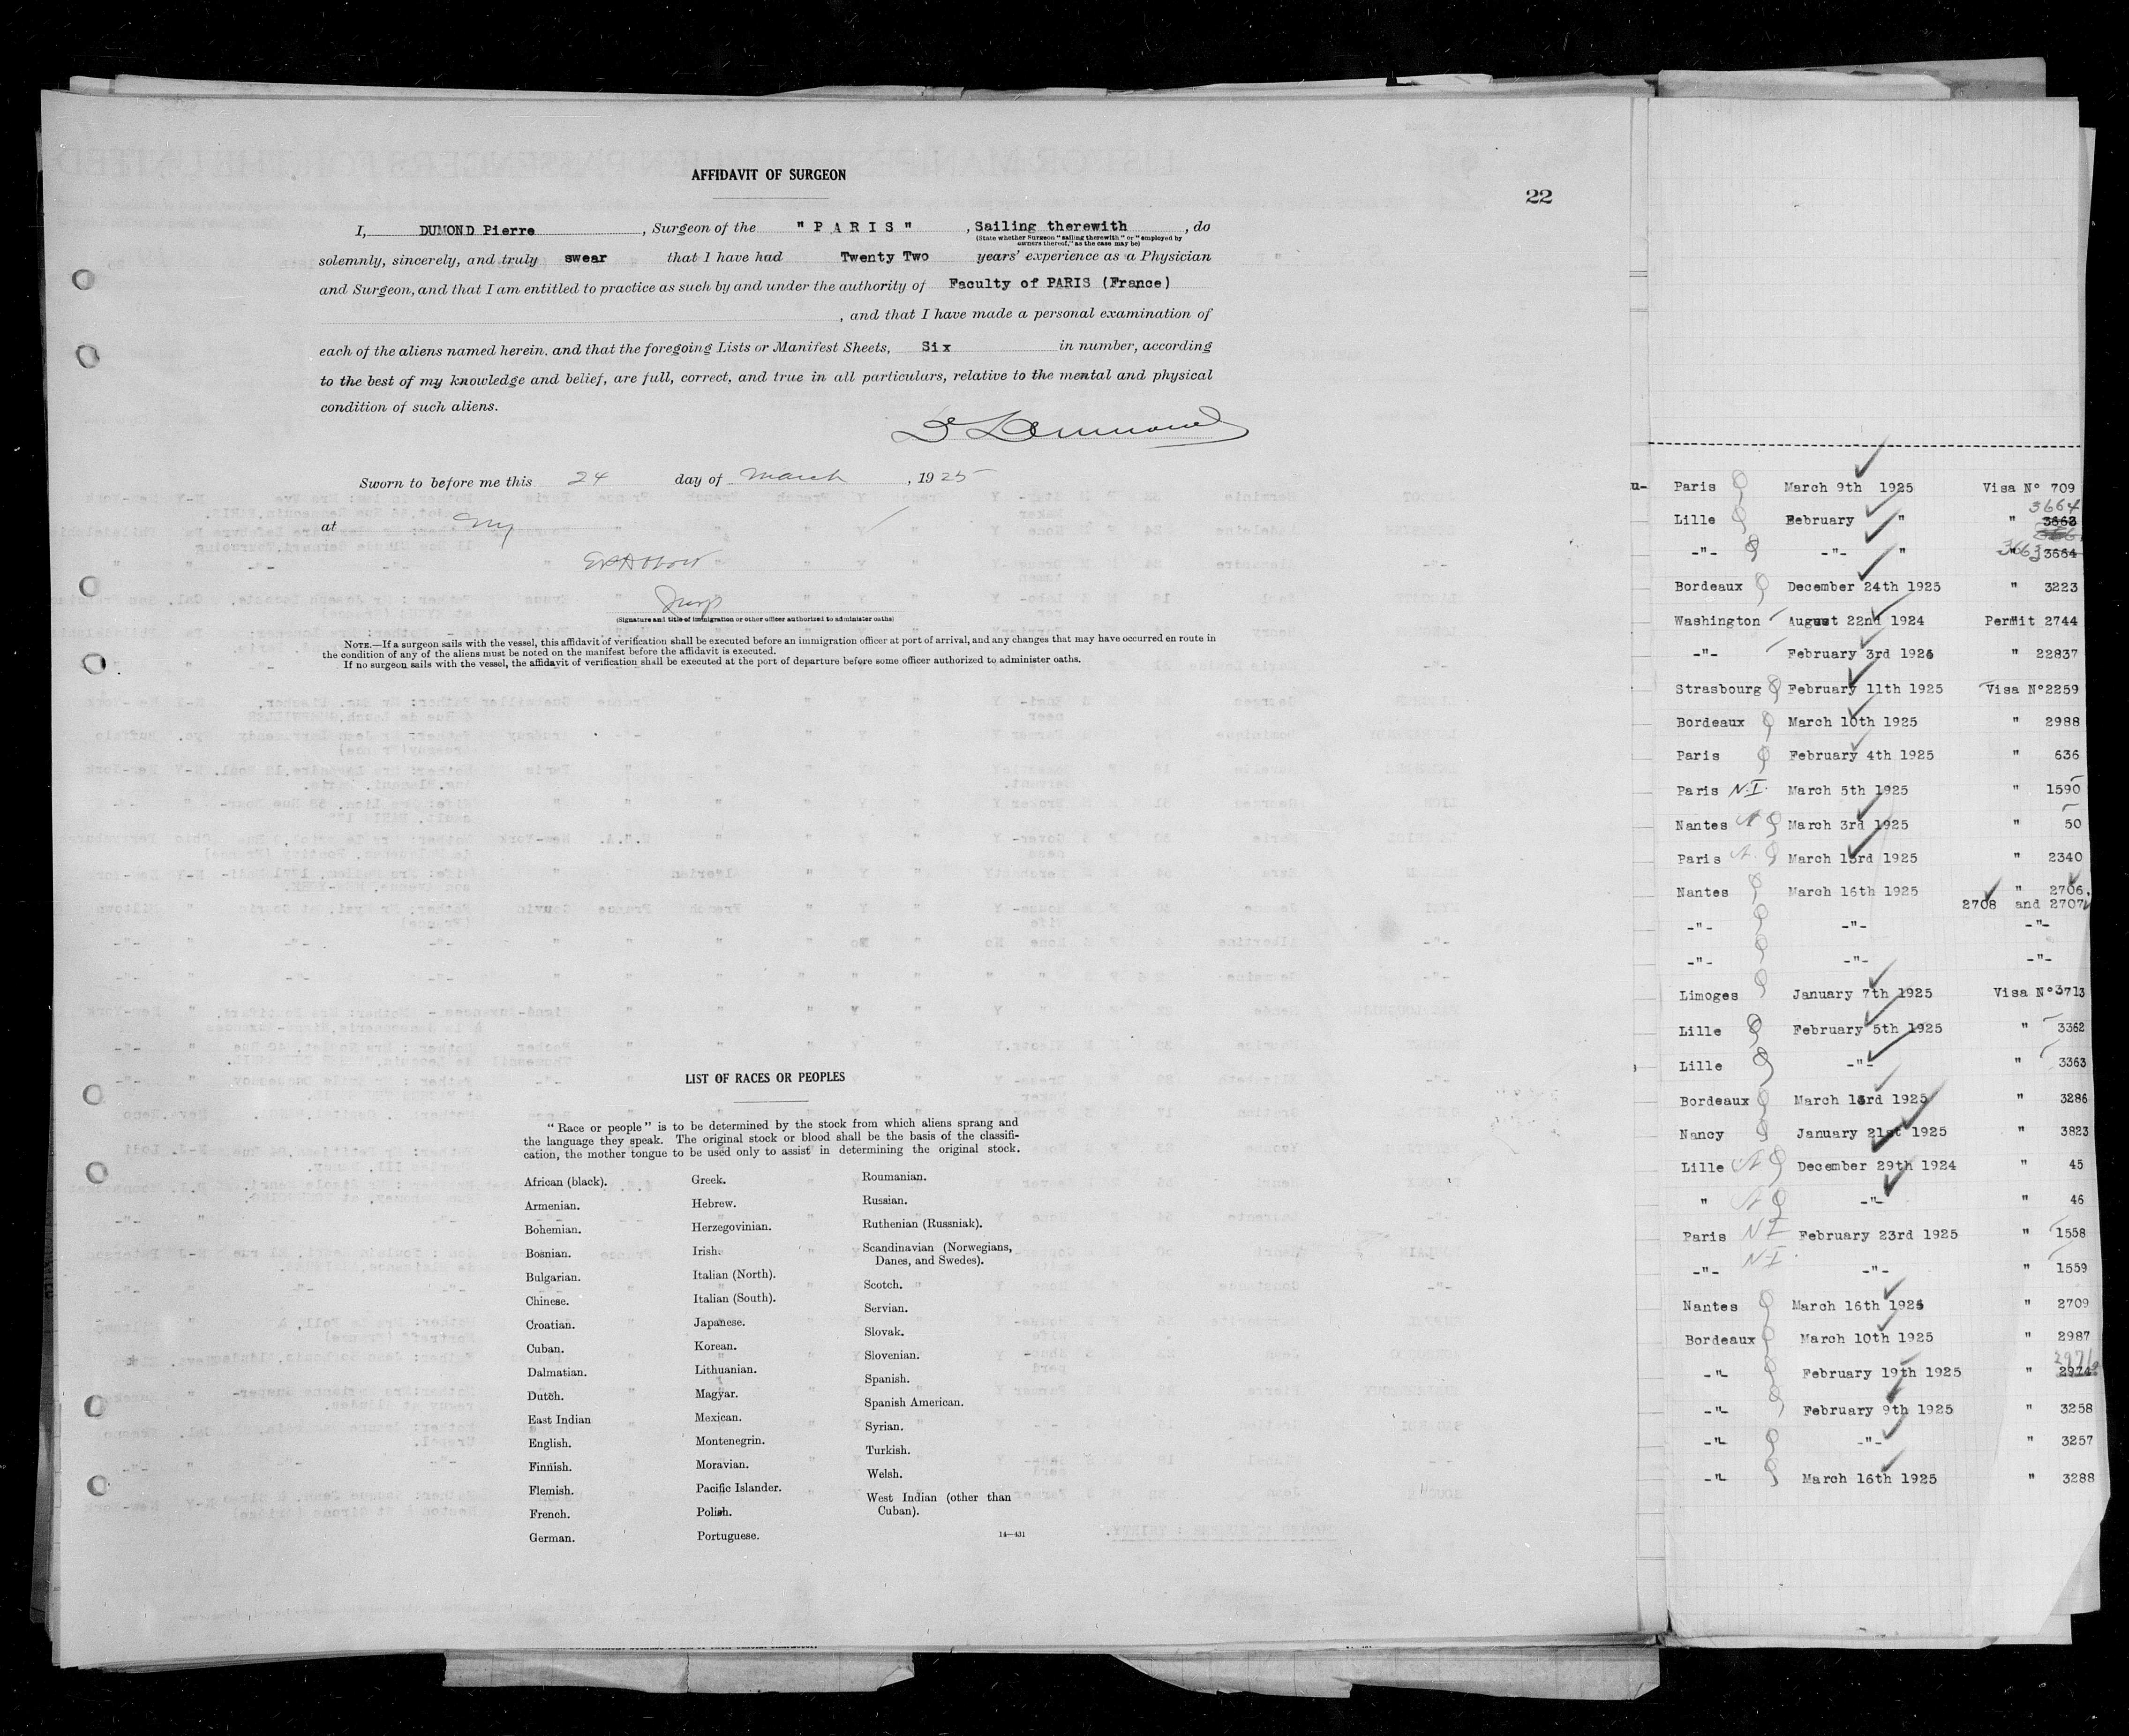 AFFIDAVIT OF SURGEON
22
I, DUMOND Pierre , Surgeon of the " P A R I S " , Sailing therewith , do
(State whether Surgeon "sailing therewith" or "employed by
owners thereof," as the case may be)
solemnly, sincerely, and truly swear that I have had Twenty Two years' experience as a Physician
and Surgeon, and that I am entitled to practice as such by and under the authority of Faculty of PARIS (France)
, and that I have made a personal examination of
each of the aliens named herein, and that the foregoing Lists or Manifest Sheets, Six in number, according
to the best of my knowledge and belief, are full, correct, and true in all particulars, relative to the mental and physical
condition of such aliens.
Sworn to before me this 24 day of March , 1925
at
(Signature and title of immigration or other officer authorized to administer oaths)
NOTE.—If a surgeon sails with the vessel, this affidavit of verification shall be executed before an immigration officer at port of arrival, and any changes that may have occurred en route in
the condition of any of the aliens must be noted on the manifest before the affidavit is executed.
If no surgeon sails with the vessel, the affidavit of verification shall be executed at the port of departure before some officer authorized to administer oaths.
LIST OF RACES OR PEOPLES
"Race or people" is to be determined by the stock from which aliens sprang and
the language they speak. The original stock or blood shall be the basis of the classifi-
cation, the mother tongue to be used only to assist in determining the original stock.
African (black).
Armenian.
Bohemian.
Bosnian.
Bulgarian.
Chinese.
Croatian.
Cuban.
Dalmatian.
Dutch.
East Indian
English.
Finnish.
Flemish.
French.
German.
Greek.
Hebrew.
Herzegovinian.
Irish.
Italian (North).
Italian (South).
Japanese.
Korean.
Lithuanian.
Magyar.
Mexican.
Montenegrin.
Moravian.
Pacific Islander.
Polish.
Portuguese.
Roumanian.
Russian.
Ruthenian (Russniak).
Scandinavian (Norwegians,
Danes, and Swedes).
Scotch.
Servian.
Slovak.
Slovenian.
Spanish.
Spanish American.
Syrian.
Turkish.
Welsh.
West Indian (other than
Cuban).
14—431
u- Paris March 9th 1925 Visa N° 709
3664
Lille February " " 3663
-"- -"- " 3663 3664
Bordeaux December 24th 1925 " 3223
Washington August 22nd 1924 Permit 2744
-"- February 3rd 1925 " 22837
Strasbourg February 11th 1925 Visa N°2259
Bordeaux March 10th 1925 " 2988
Paris February 4th 1925 " 636
Paris N.I. March 5th 1925 " 1590
Nantes March 3rd 1925 " 50
Paris March 13rd 1925 " 2340
Nantes March 16th 1925 " 2706,
2708 and 2707
-"- -"- -"-
-"- -"- -"-
Limoges January 7th 1925 Visa N°3713
Lille February 5th 1925 " 3362
Lille -"- " 3363
Bordeaux March 13rd 1925 " 3286
Nancy January 21st 1925 " 3823
Lille December 29th 1924 " 45
" -"- " 46
Paris N I February 23rd 1925 " 1558
-"- N I. -"- " 1559
Nantes March 16th 1925 " 2709
Bordeaux March 10th 1925 " 2987
-"- February 19th 1925 " 2974
-"- February 9th 1925 " 3258
-"- -"- " 3257
-"- March 16th 1925 " 3288